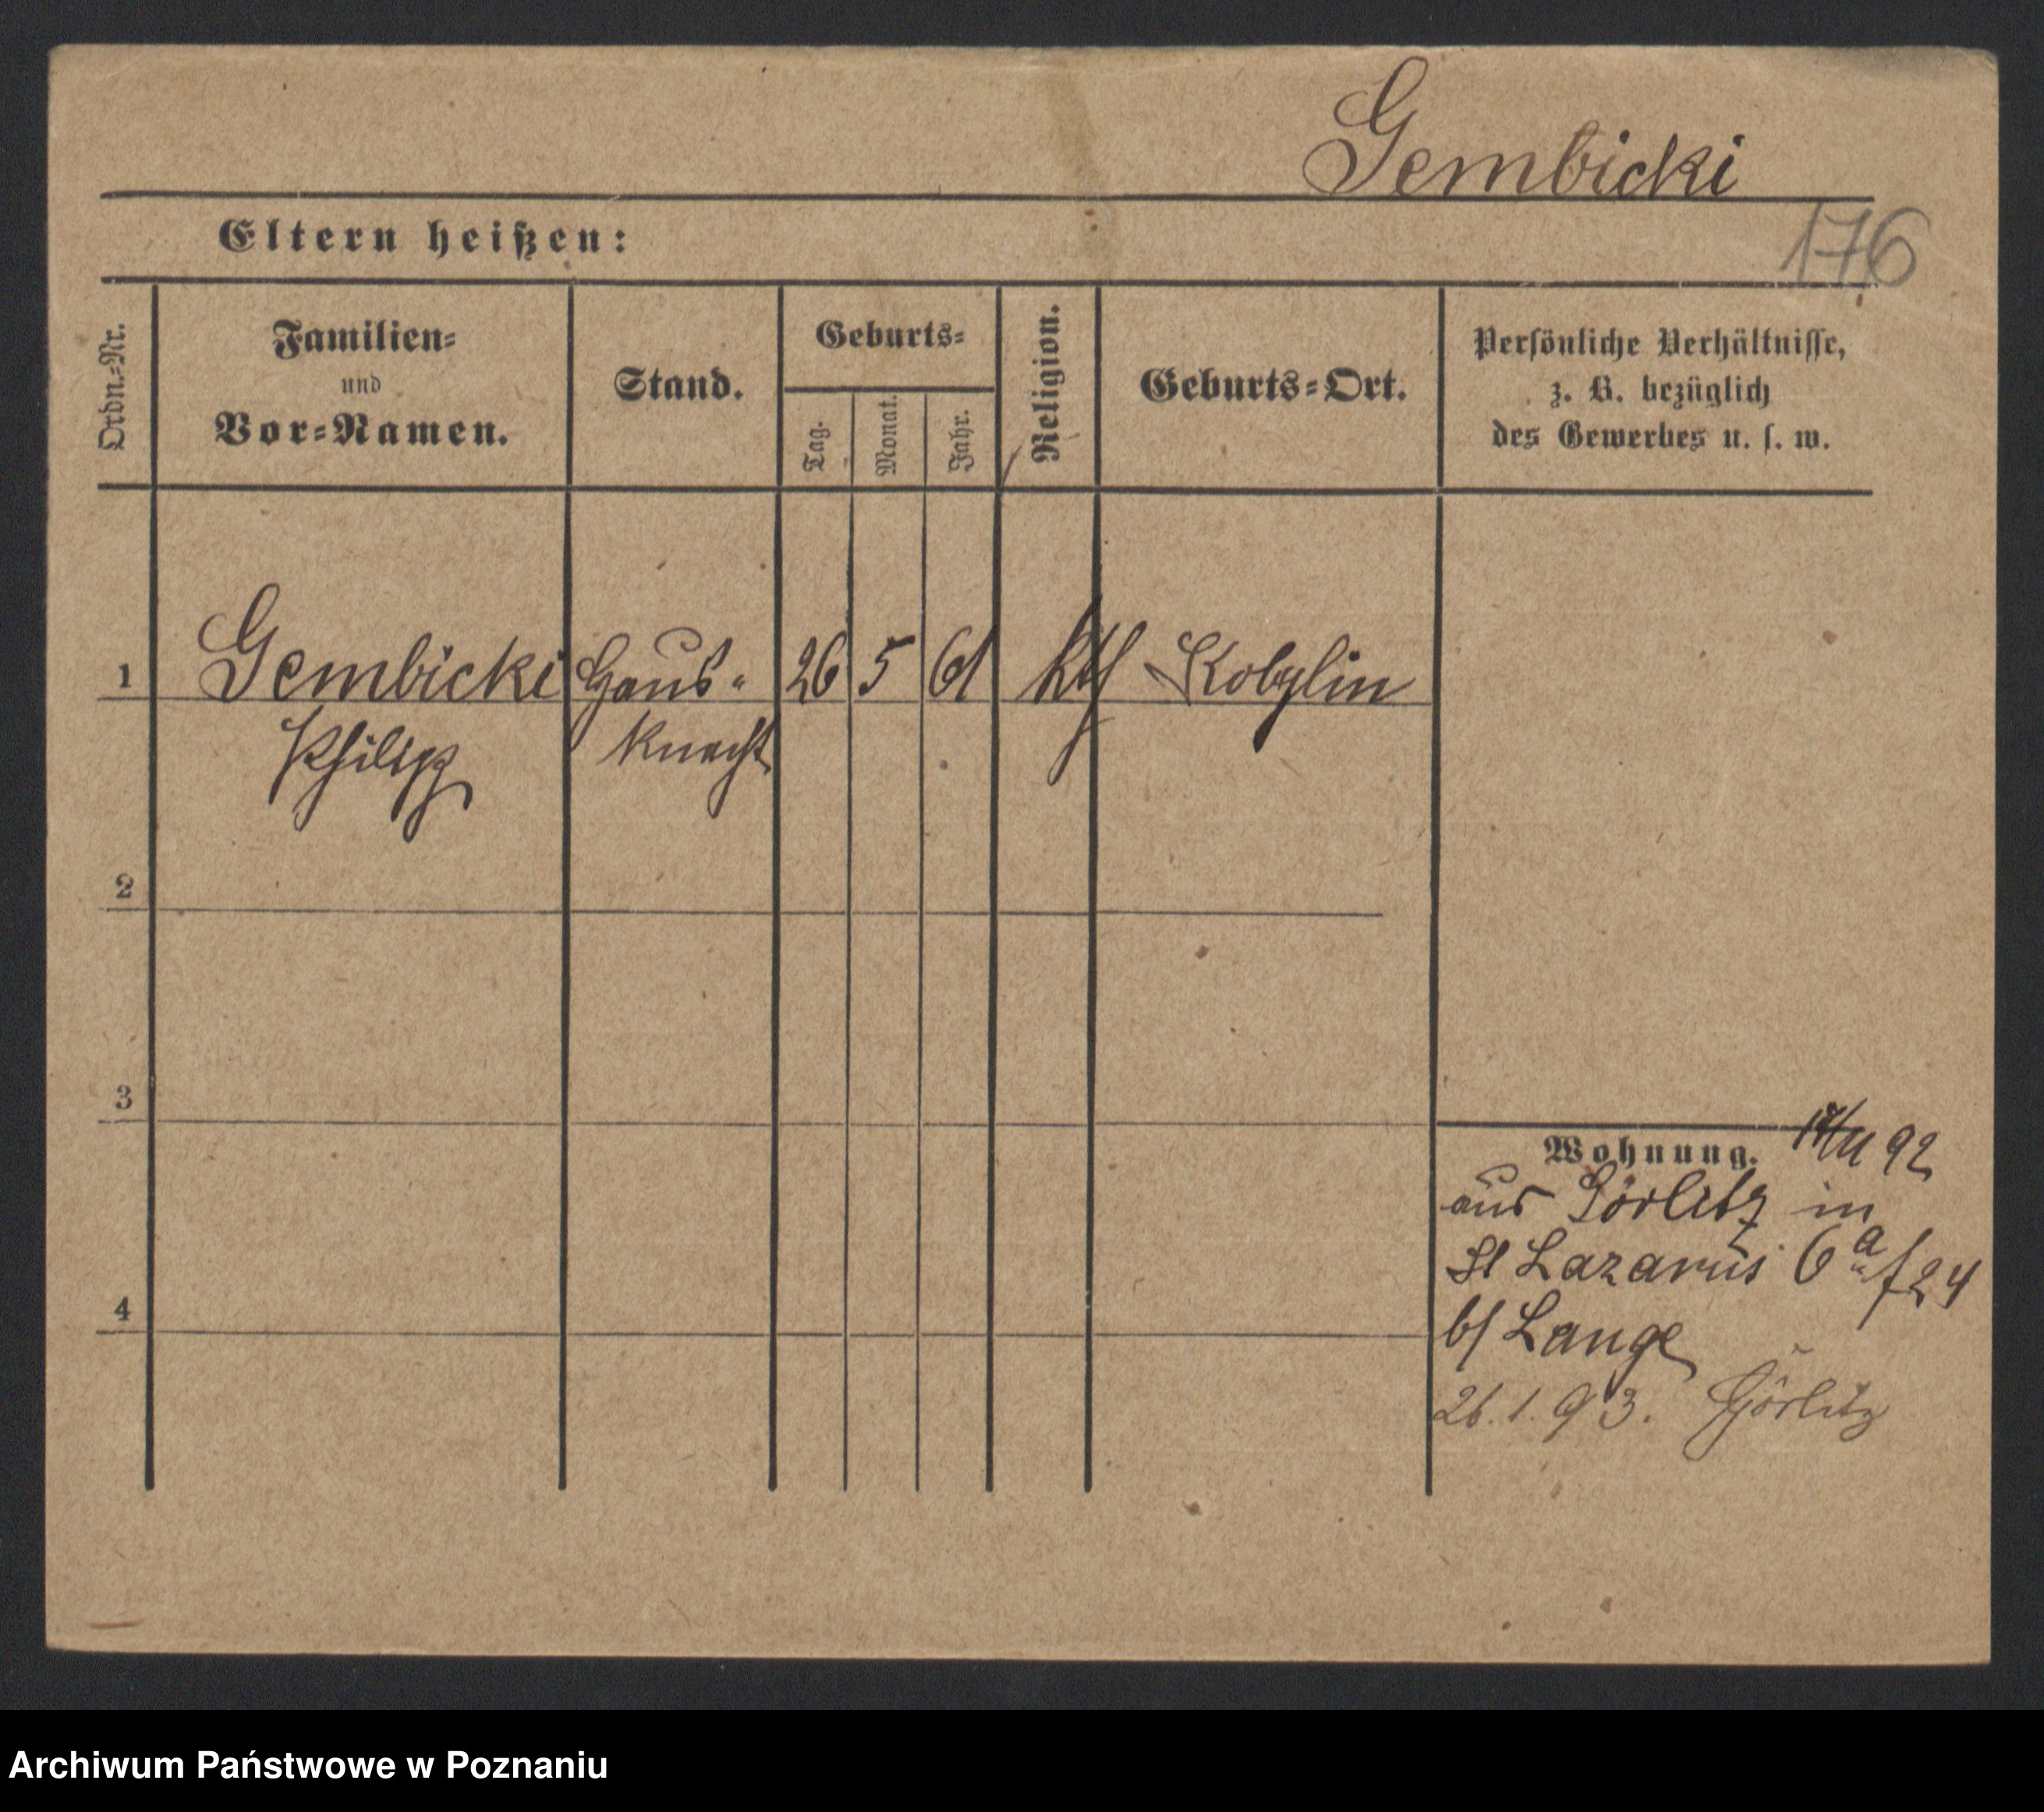 Gembicki
176
Eltern heißen:
Ordn.-Nr.
Familien-
und
Vor-Namen.
Stand.
Geburts-
Tag.
Monat.
Jahr.
Religion.
Geburts-Ort.
Persönliche Verhältnisse,
z. B. bezüglich
des Gewerbes u. s. w.
1 Gembicki Haus- 26 5 61 kth Kobylin
Philipp knecht
2
3
Wohnung. /11 92
aus Görlitz in
St Lazarus 6a f 24
4
b/ Lange
26. 1. 93. Görlitz
Archiwum Państwowe w Poznaniu